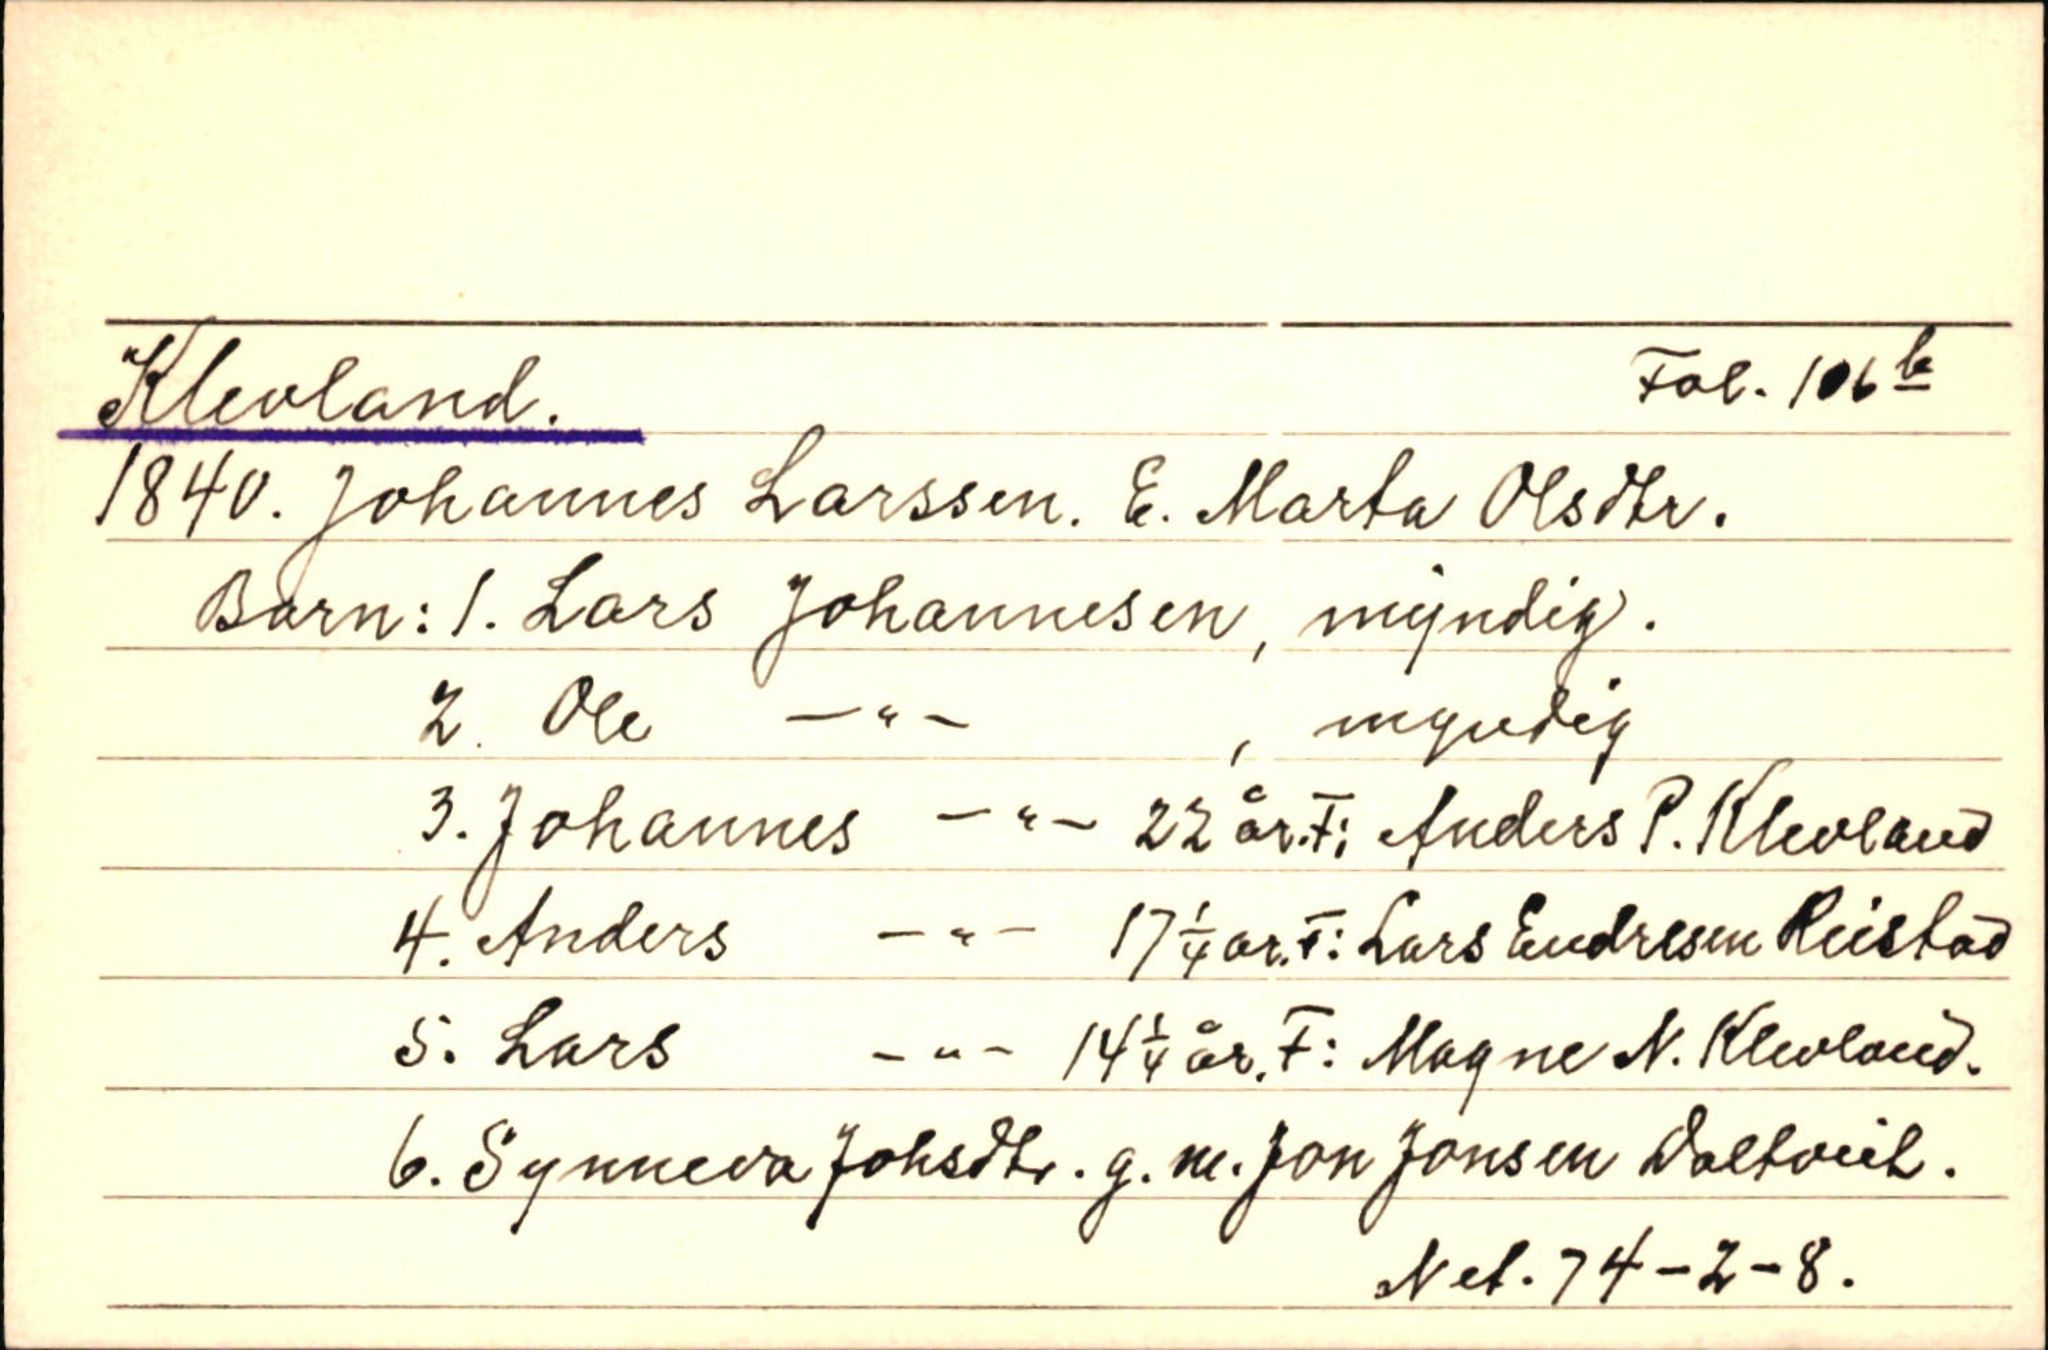 Klevland. Fol. 106b
1840. Johannes Larssen. E. Marta Olsdtr.
Barn: 1. Lars Johannesen, myndig.
2. Ole —"— , myndig
3. Johannes —"— 22 år. F: Anders P. Klevland
4. Anders —"— 17 1/4 ar. F: Lars Endresen Reistad
5. Lars —"— 14 1/4 år. F: Magne N. Klevland.
6. Synneva Johsdtr. g. m. Jon Jonsen Daltveit.
Net. 74-2-8.